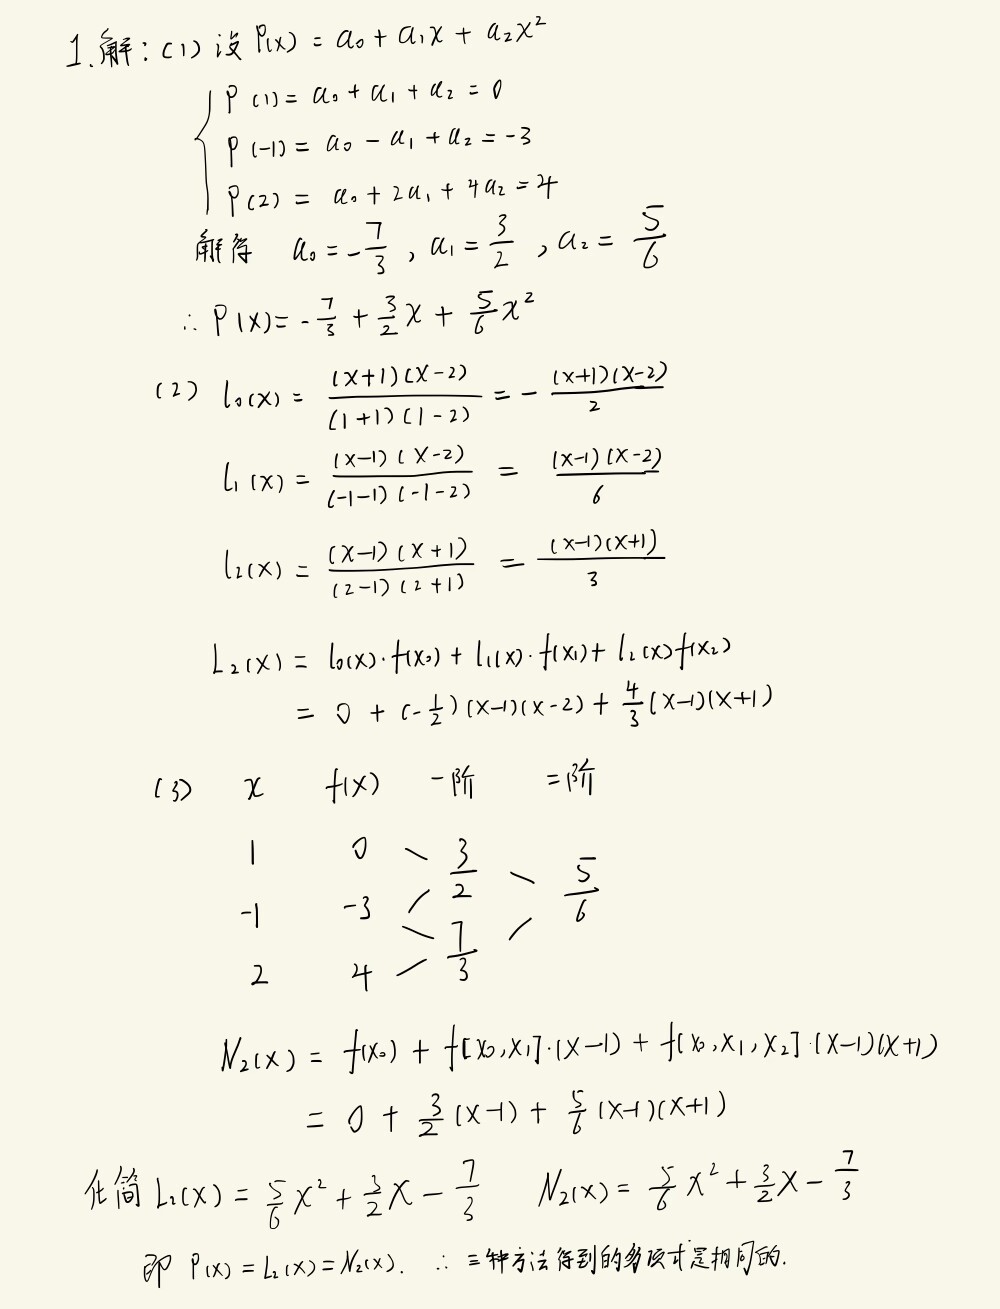 1.解：(1) 设 P(x) = a₀ + a₁x + a₂x²
P(1) = a₀ + a₁ + a₂ = 0
P(-1) = a₀ - a₁ + a₂ = -3
P(2) = a₀ + 2a₁ + 4a₂ = 4
解得 a₀ = -7/3 , a₁ = 3/2 , a₂ = 5/6
∴ P(x) = -7/3 + 3/2 x + 5/6 x²
(2) l₀(x) = (x+1)(x-2)/(1+1)(1-2) = - (x+1)(x-2)/2
l₁(x) = (x-1)(x-2)/(-1-1)(-1-2) = (x-1)(x-2)/6
l₂(x) = (x-1)(x+1)/(2-1)(2+1) = (x-1)(x+1)/3
L₂(x) = l₀(x)·f(x₀) + l₁(x)·f(x₁) + l₂(x)f(x₂)
= 0 + (-1/2)(x-1)(x-2) + 4/3(x-1)(x+1)
(3) x f(x) 一阶 二阶
1 0
3/2
5/6
-1 -3
7/3
2 4
N₂(x) = f(x₀) + f[x₀,x₁]·(x-1) + f[x₀,x₁,x₂]·(x-1)(x+1)
= 0 + 3/2(x-1) + 5/6(x-1)(x+1)
化简 L₂(x) = 5/6 x² + 3/2 x - 7/3 N₂(x) = 5/6 x² + 3/2 x - 7/3
即 P(x) = L₂(x) = N₂(x). ∴ 三种方法得到的多项式是相同的.